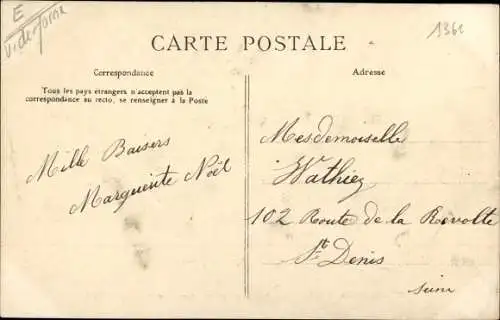 E
1362
CARTE POSTALE
Correspondance
Tous les pays étrangers n'acceptent pas la
correspondance au recto, se renseigner à la Poste
Mille Baisers
Marguerite Noël
Adresse
Mesdemoiselle
Wathiez
102 Route de la Revolte
St Denis
Seine